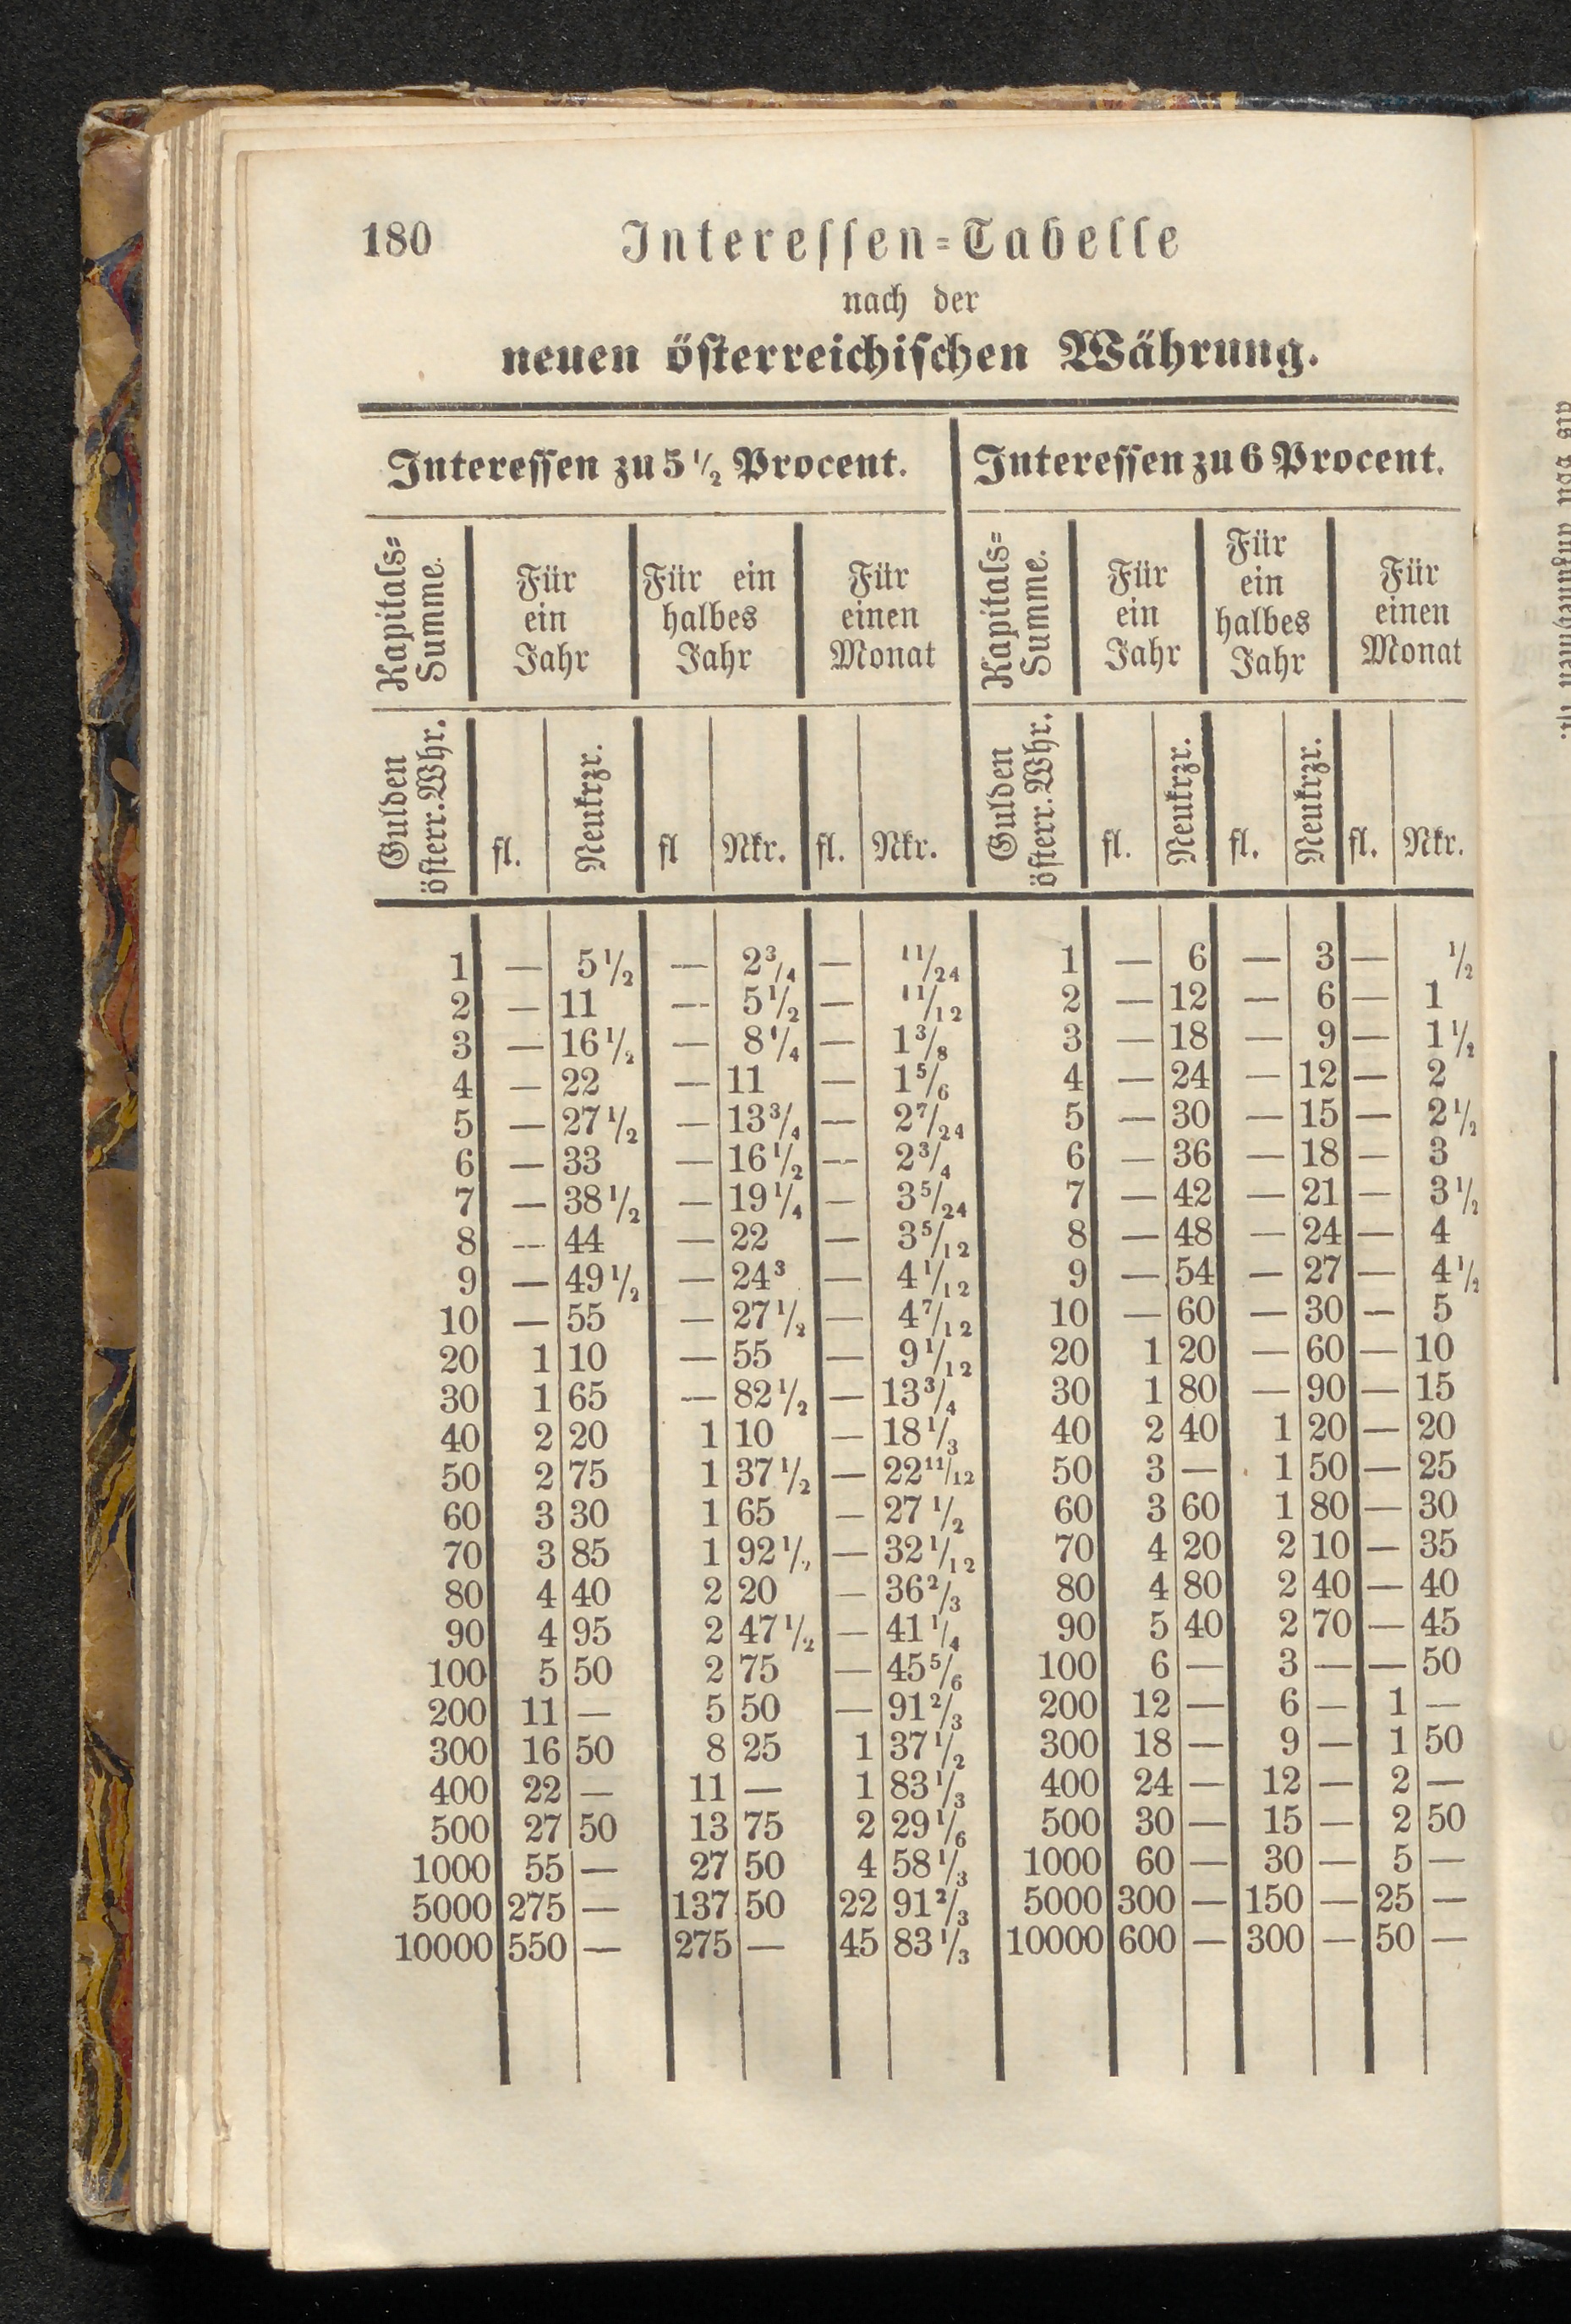 180 Interessen=Tabelle
nach der
neuen österreichischen Währung.
Interessen zu 5 1/2 Procent. Interessen zu 6 Procent.
Kapitals=Summe. Für ein Jahr Für ein halbes Jahr Für einen Monat Kapitals=Summe. Für ein Jahr Für ein halbes Jahr Für einen Monat
Gulden österr. Whr. fl. Neukrzr. fl Nkr. fl. Nkr. Gulden österr. Whr. fl. Neukrzr. fl. Neukrzr. fl. Nkr.
1 — 5 1/2 — 2 3/4 — 11/24 1 — 6 — 3 — 1/2
2 — 11 — 5 1/2 — 11/12 2 — 12 — 6 — 1
3 — 16 1/2 — 8 1/4 — 1 3/8 3 — 18 — 9 — 1 1/2
4 — 22 — 11 — 1 5/6 4 — 24 — 12 — 2
5 — 27 1/2 — 13 3/4 — 2 7/24 5 — 30 — 15 — 2 1/2
6 — 33 — 16 1/2 — 2 3/4 6 — 36 — 18 — 3
7 — 38 1/2 — 19 1/4 — 3 5/24 7 — 42 — 21 — 3 1/2
8 — 44 — 22 — 3 5/12 8 — 48 — 24 — 4
9 — 49 1/2 — 24 3 — 4 1/12 9 — 54 — 27 — 4 1/2
10 — 55 — 27 1/2 — 4 7/12 10 — 60 — 30 — 5
20 1 10 — 55 — 9 1/12 20 1 20 — 60 — 10
30 1 65 — 82 1/2 — 13 3/4 30 1 80 — 90 — 15
40 2 20 1 10 — 18 1/3 40 2 40 1 20 — 20
50 2 75 1 37 1/2 — 22 11/12 50 3 — 1 50 — 25
60 3 30 1 65 — 27 1/2 60 3 60 1 80 — 30
70 3 85 1 92 1/2 — 32 1/12 70 4 20 2 10 — 35
80 4 40 2 20 — 36 2/3 80 4 80 2 40 — 40
90 4 95 2 47 1/2 — 41 1/4 90 5 40 2 70 — 45
100 5 50 2 75 — 45 5/6 100 6 — 3 — — 50
200 11 — 5 50 — 91 2/3 200 12 — 6 — 1 —
300 16 50 8 25 1 37 1/2 300 18 — 9 — 1 50
400 22 — 11 — 1 83 1/3 400 24 — 12 — 2 —
500 27 50 13 75 2 29 1/6 500 30 — 15 — 2 50
1000 55 — 27 50 4 58 1/3 1000 60 — 30 — 5 —
5000 275 — 137 50 22 91 2/3 5000 300 — 150 — 25 —
10000 550 — 275 — 45 83 1/3 10000 600 — 300 — 50 —